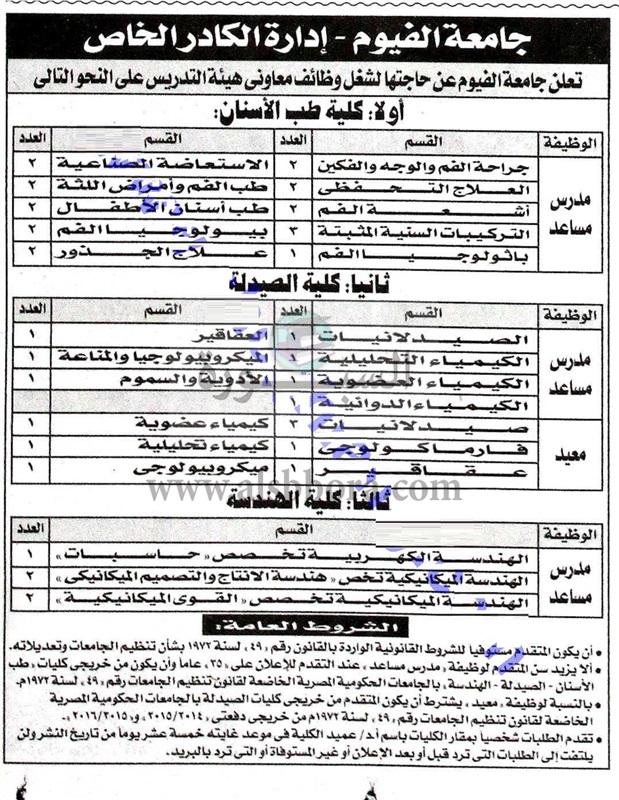 جامعة الفيوم - إدارة الكادر الخاص
تعلن جامعة الفيوم عن حاجتها لشغل وظائف معاونى هيئة التدريس على النحو التالى
أولا: كلية طب الأسنان:
الوظيفة القسم العدد القسم العدد
مدرس مساعد
جراحة الفم والوجه والفكين ٢ الاستعاضة الصناعية ٢
العلاج التحفظى ٢ طب الفم وأمراض اللثة ٢
أشعة الفم ٢ طب أسنان الأطفال ٢
التركيبات السنية المثبتة ٣ بيولوجيا الفم ٢
باثولوجيا الفم ١ علاج الجذور ٢
ثانيا: كلية الصيدلة
الوظيفة القسم العدد القسم العدد
مدرس مساعد
الصيدلانيات ١ العقاقير ١
الكيمياء التحليلية ١ الميكروبيولوجيا والمناعة ١
الكيمياء العضوية الأدوية والسموم ١
الكيمياء الدوائية ١
معيد
صيدلانيات ٣ كيمياء عضوية ١
فارماكولوجى ١ كيمياء تحليلية ١
عقاقير ١ ميكروبيولوجى ١
السبورة
www.alshbora.com
ثالثا: كلية الهندسة
الوظيفة القسم العدد
مدرس مساعد
الهندسة الكهربية تخصص «حاسبات» ١
الهندسة الميكانيكية تخصص «هندسة الانتاج والتصميم الميكانيكى» ٢
الهندسة الميكانيكية تخصص «القوى الميكانيكية» ٢
الشروط العامة:
• أن يكون المتقدم مستوفيا للشروط القانونية الواردة بالقانون رقم «٤٩» لسنة ١٩٧٢ بشأن تنظيم الجامعات وتعديلاته.
• ألا يزيد سن المتقدم لوظيفة «مدرس مساعد» عند التقدم للإعلان على «٣٥» عاما وأن يكون من خريجى كليات «طب
الأسنان - الصيدلة - الهندسة» بالجامعات الحكومية المصرية الخاضعة لقانون تنظيم الجامعات رقم «٤٩» لسنة ١٩٧٢م.
• بالنسبة لوظيفة «معيد» يشترط أن يكون المتقدم من خريجى كليات الصيدلة بالجامعات الحكومية المصرية
الخاضعة لقانون تنظيم الجامعات رقم «٤٩» لسنة ١٩٧٢م من خريجى دفعتى «٢٠١٥/٢٠١٤» و«٢٠١٦/٢٠١٥».
• تقدم الطلبات شخصياً بمقار الكليات باسم أ.د/ عميد الكلية فى موعد غايته خمسة عشر يوماً من تاريخ النشر ولن
يلتفت إلى الطلبات التى ترد قبل أو بعد الإعلان أو غير المستوفاة أو التى ترد بالبريد.